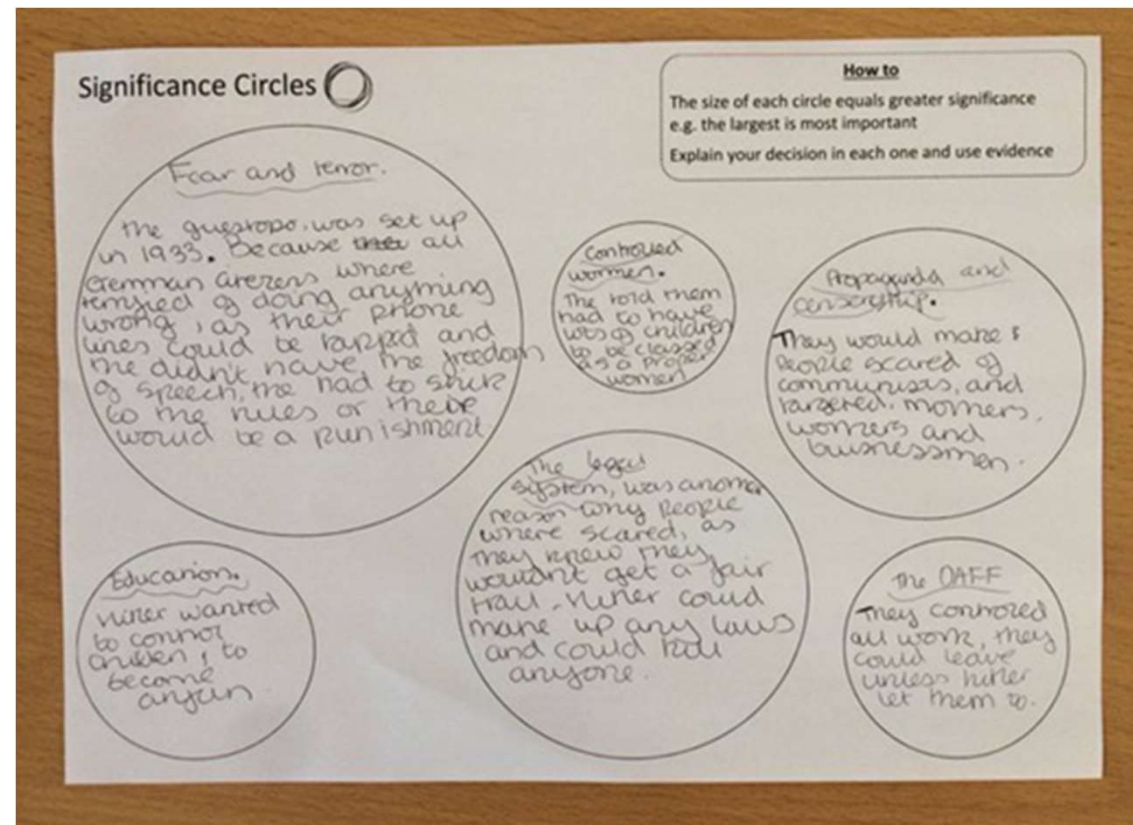 Significance Circles
How to
The size of each circle equals greater significance
e.g. the largest is most important
Explain your decision in each one and use evidence
Fear and terror.
the guestopo was set up
in 1933. Because all
Gremman
terrified of doing anything
wrong, as their phone
lines could be tapped and
the didn't have the freedom
of speech, the had to stick
to the rules or there
would be a punishment
Controlled
women.
The told them
had to have
lots of children
to be classed
as a proper
women
Propaganda and
censership.
They would make
people scared of
communists, and
targered, mothers,
workers and
buisnessmen.
The legal
system, was another
reason why people
where scared, as
they knew they
wouldn't get a fair
trail. Hitler could
make up any laws
and could kill
anyone.
Education.
Hitler wanted
to control
, to
become
The DAFF
They controled
all work, they
could leave
unless hitler
let them to.